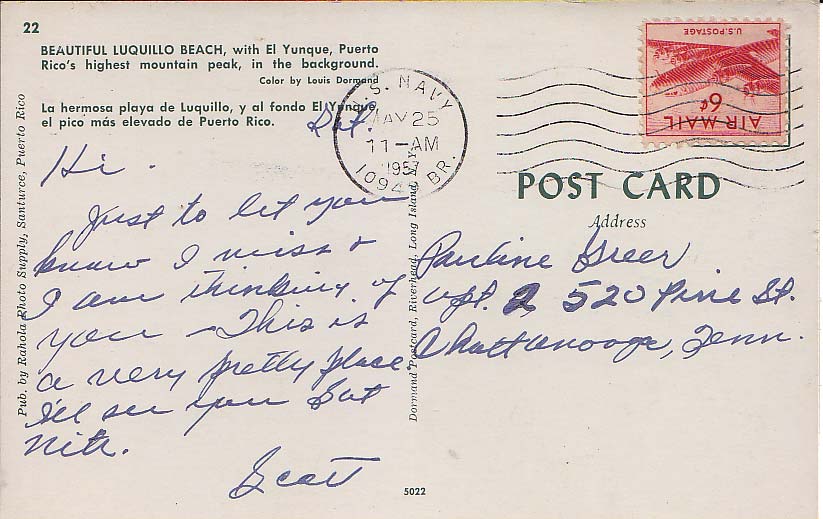 22
BEAUTIFUL LUQUILLO BEACH, with El Yunque, Puerto
Rico's highest mountain peak, in the background.
Color by Louis Dormand
La hermosa playa de Luquillo, y al fondo El Yunque,
el pico más elevado de Puerto Rico.
Pub. by Rahola Photo Supply, Santurce, Puerto Rico
Sat.
Hi.
Just to let you
know I miss &
I am thinking of
you - This is
a very pretty place
I'll see you Sat
nite.
Scott
Dormand Postcard, Riverhead, Long Island, N.Y.
5022
U.S. NAVY
MAY 25
11-AM
1957
BR.
U.S. POSTAGE
6¢
AIR MAIL
POST CARD
Address
Pauline Greer
Apt. 2 520 Pine St.
Chattanooga, Tenn.